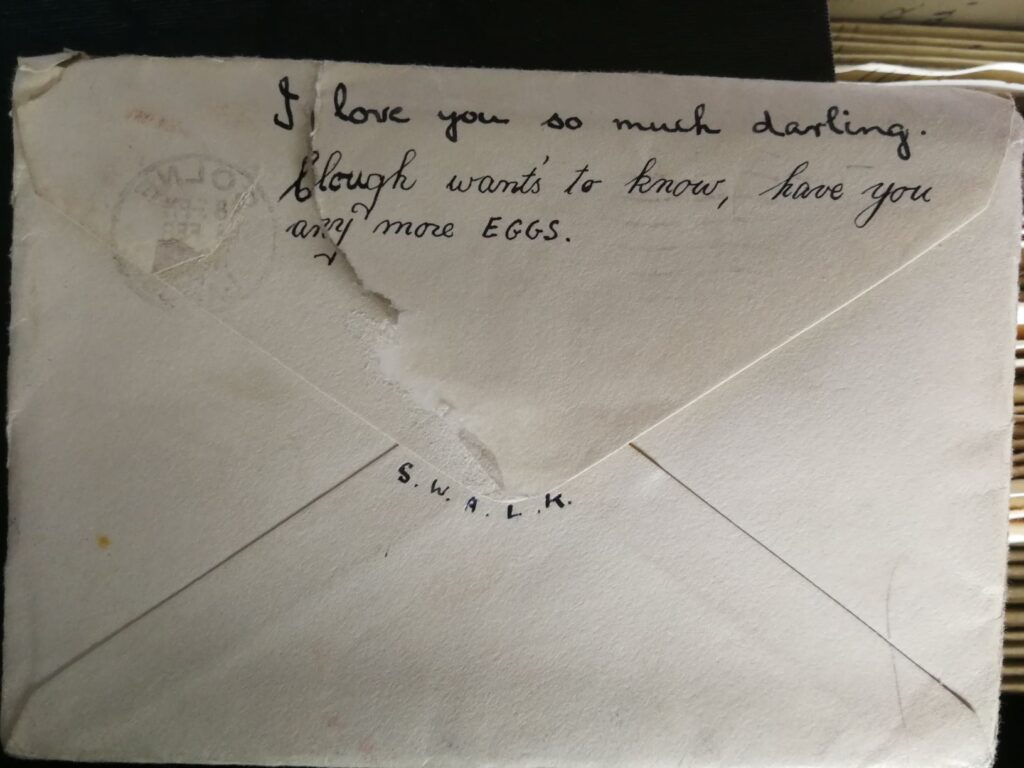 I love you so much darling.
Clough want's to know, have you
any more EGGS.
S.W.A.L.K.